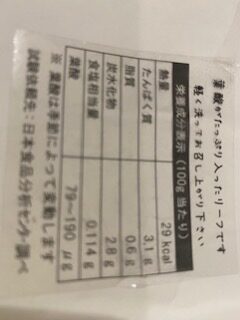 葉酸がたっぷり入ったリーフです
軽く洗ってお召し上がり下さい
栄養成分表示(100g当たり)
熱量 29 kcal
たんぱく質 3.1 g
脂質 0.6 g
炭水化物 2.8 g
食塩相当量 0.114 g
葉酸 79〜190 μg
※ 葉酸は季節によって変動します
試験依頼先:日本食品分析センター調べ